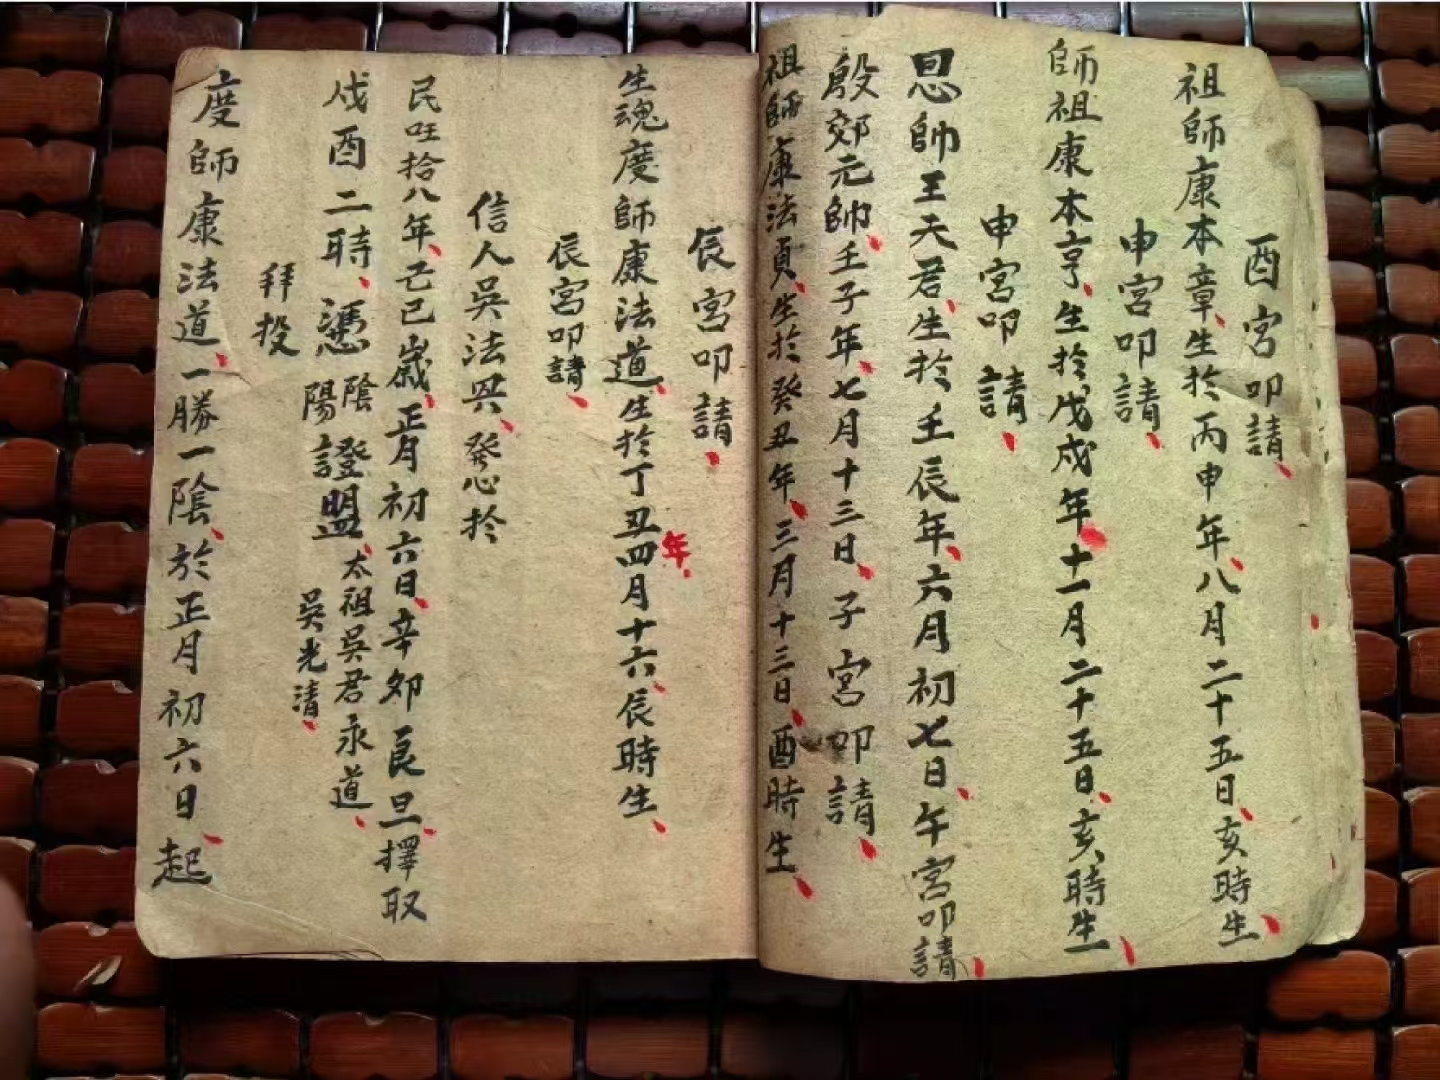 酉宮叩請
祖師康本章生於丙申年八月二十五日亥時生
申宮叩請
師祖康本亨生於戊戌年十一月二十五日亥時生
申宮叩請
恩帥王天君生於壬辰年六月初七日午宮叩請
殷郊元帥壬子年七月十三日子宮叩請
祖師康法真生於癸丑年三月十三日酉時生
辰宮叩請
生魂度師康法道生於丁丑年四月十六辰時生
辰宮叩請
信人吳法興發心於
民国拾八年己巳歲正月初六日辛卯良旦擇取
戍酉二時憑陰陽證盟太祖吳君永道
吳光清
拜投
度師康法道一勝一陰於正月初六日起